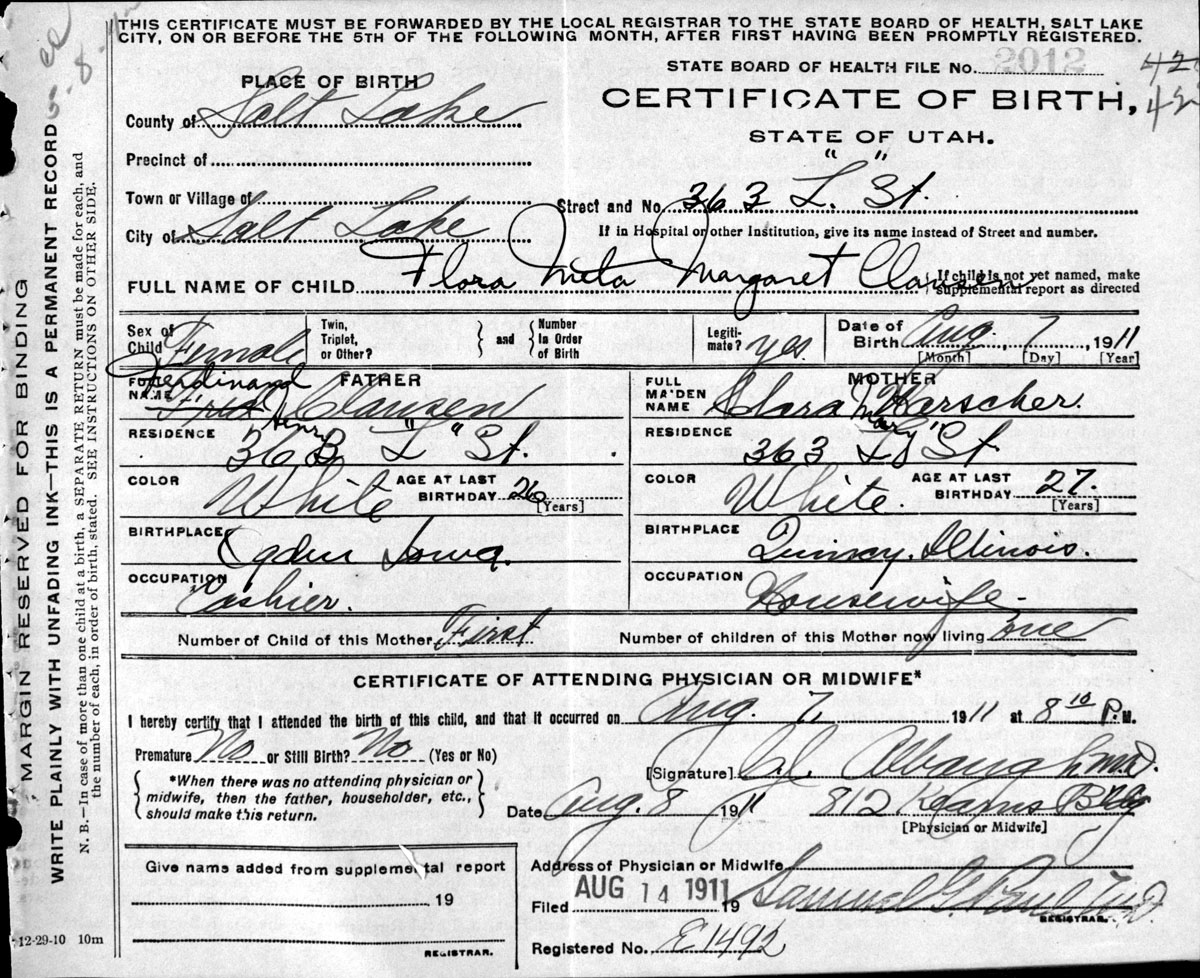 THIS CERTIFICATE MUST BE FORWARDED BY THE LOCAL REGISTRAR TO THE STATE BOARD OF HEALTH, SALT LAKE
CITY, ON OR BEFORE THE 5TH OF THE FOLLOWING MONTH, AFTER FIRST HAVING BEEN PROMPTLY REGISTERED.
PLACE OF BIRTH
STATE BOARD OF HEALTH FILE No. 2012
CERTIFICATE OF BIRTH,
STATE OF UTAH.
County of Salt Lake
Precinct of
Town or Village of
City of Salt Lake
Street and No. 363 "L" St.
If in Hospital or other Institution, give its name instead of Street and number.
FULL NAME OF CHILD Flora Meta Margaret Clausen
If child is not yet named, make
supplemental report as directed
Sex of Child Female
Twin, Triplet, or Other?
and
Number In Order of Birth
Legiti-mate? yes.
Date of Birth Aug. 7, 1911
[Month] [Day] [Year]
FATHER
FULL NAME Ferdinand Henry Clausen
RESIDENCE 363 "L" St.
COLOR White
AGE AT LAST BIRTHDAY 26
[Years]
BIRTHPLACE Ogden Iowa.
OCCUPATION Cashier.
MOTHER
FULL MAIDEN NAME Clara Mary Herscher.
RESIDENCE 363 "L" St
COLOR White.
AGE AT LAST BIRTHDAY 27.
[Years]
BIRTHPLACE Quincy, Illinois.
OCCUPATION Housewife
Number of Child of this Mother First
Number of children of this Mother now living One
CERTIFICATE OF ATTENDING PHYSICIAN OR MIDWIFE*
I hereby certify that I attended the birth of this child, and that it occurred on Aug. 7, 1911 at 8 10 P. M.
Premature No or Still Birth? No (Yes or No)
*When there was no attending physician or
midwife, then the father, householder, etc.,
should make this return.
[Signature] Albaugh M.D.
Date Aug. 8 1911 812 Kearns Bldg
[Physician or Midwife]
Address of Physician or Midwife
Filed AUG 14 1911 19 Samuel G. Paul M.D.
REGISTRAR.
Registered No. E1492
Give name added from supplemental report
19
REGISTRAR.
12-29-10 10m
MARGIN RESERVED FOR BINDING
WRITE PLAINLY WITH UNFADING INK—THIS IS A PERMANENT RECORD
N. B.—In case of more than one child at a birth, a SEPARATE RETURN must be made for each, and
the number of each, in order of birth, stated. SEE INSTRUCTIONS ON OTHER SIDE.